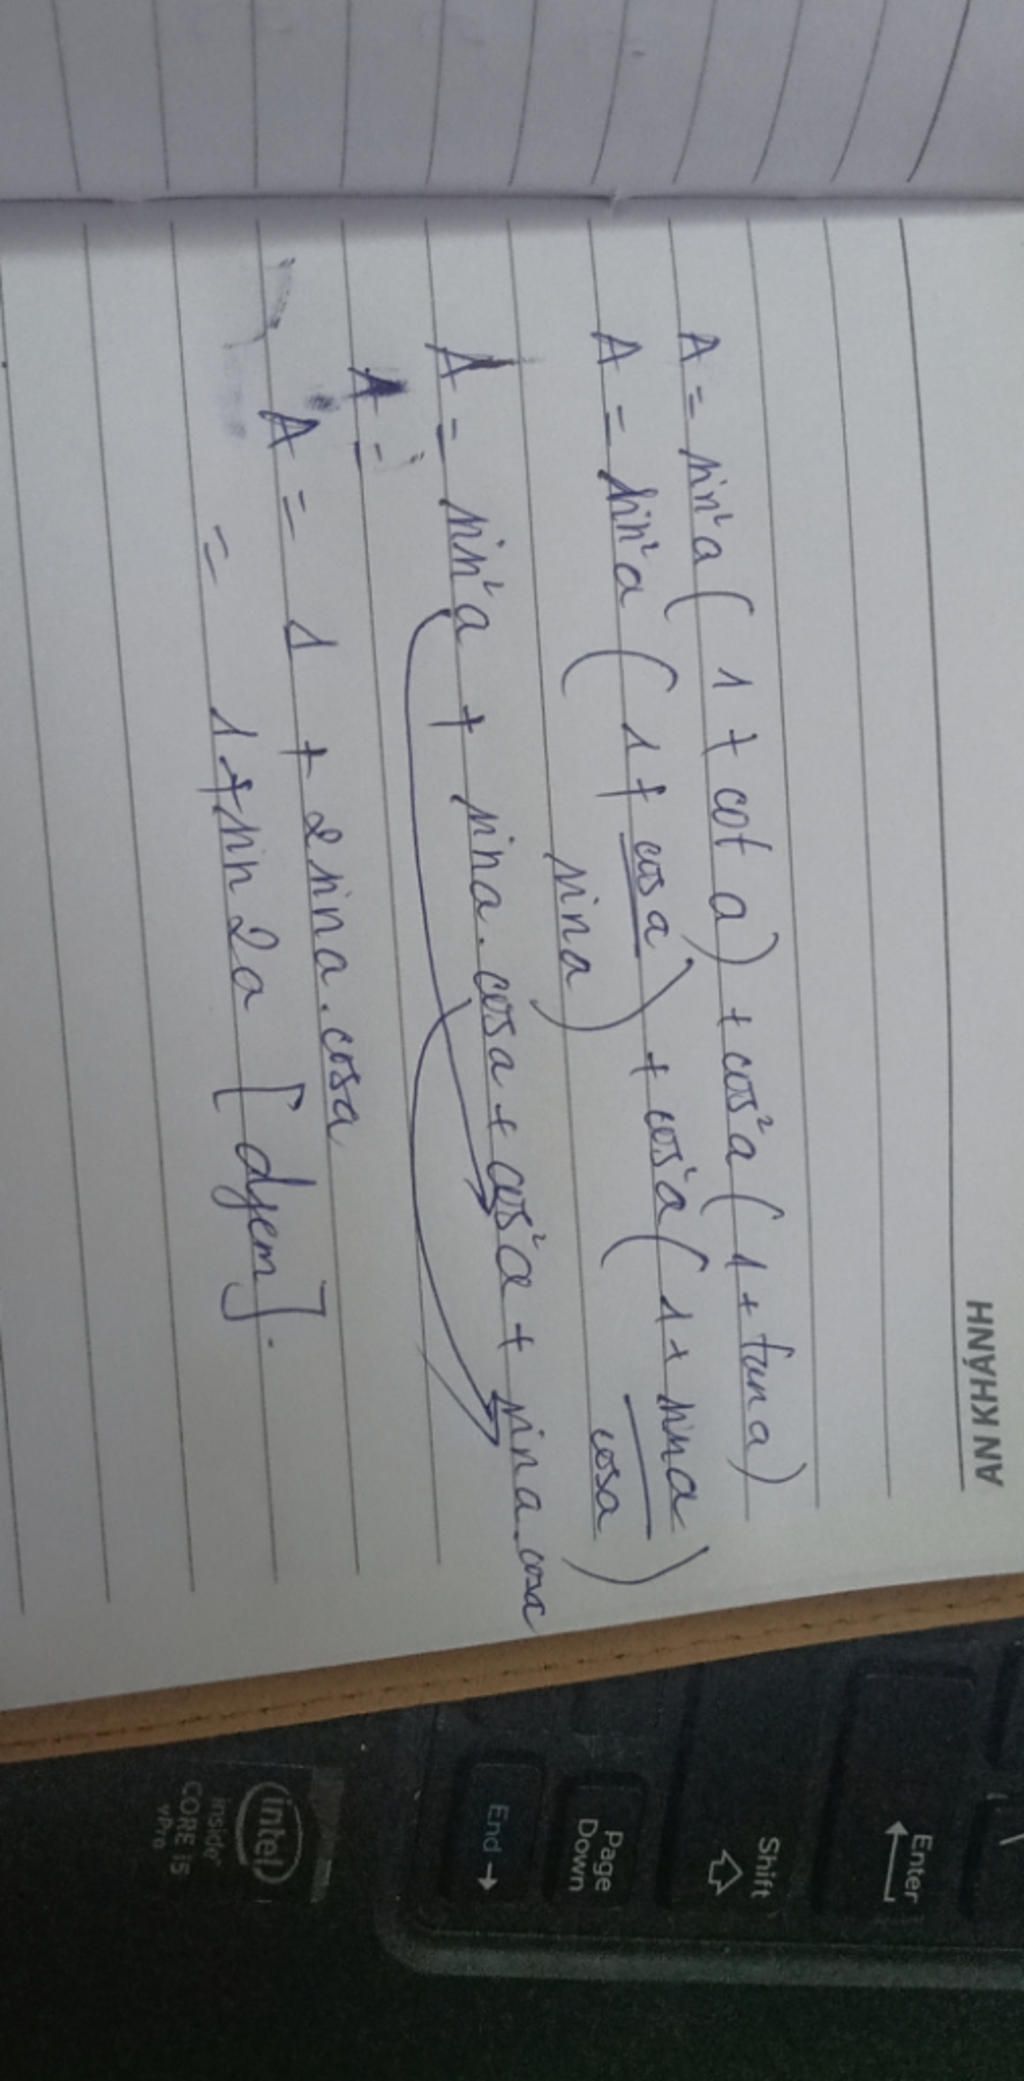 AN KHÁNH
A = sin²a ( 1 + cot a) + cos²a ( 1 + tan a)
A = sin²a ( 1 + cos a / sina ) + cos²a ( 1 + sina / cosa )
A = sin²a + sina. cosa + cos²a + sina.cosa
A =
A = 1 + 2 sina. cosa
= 1 + sin 2a [ dyem ].
Enter
Shift
Page
Down
End →
intel
inside
CORE i5
vPro